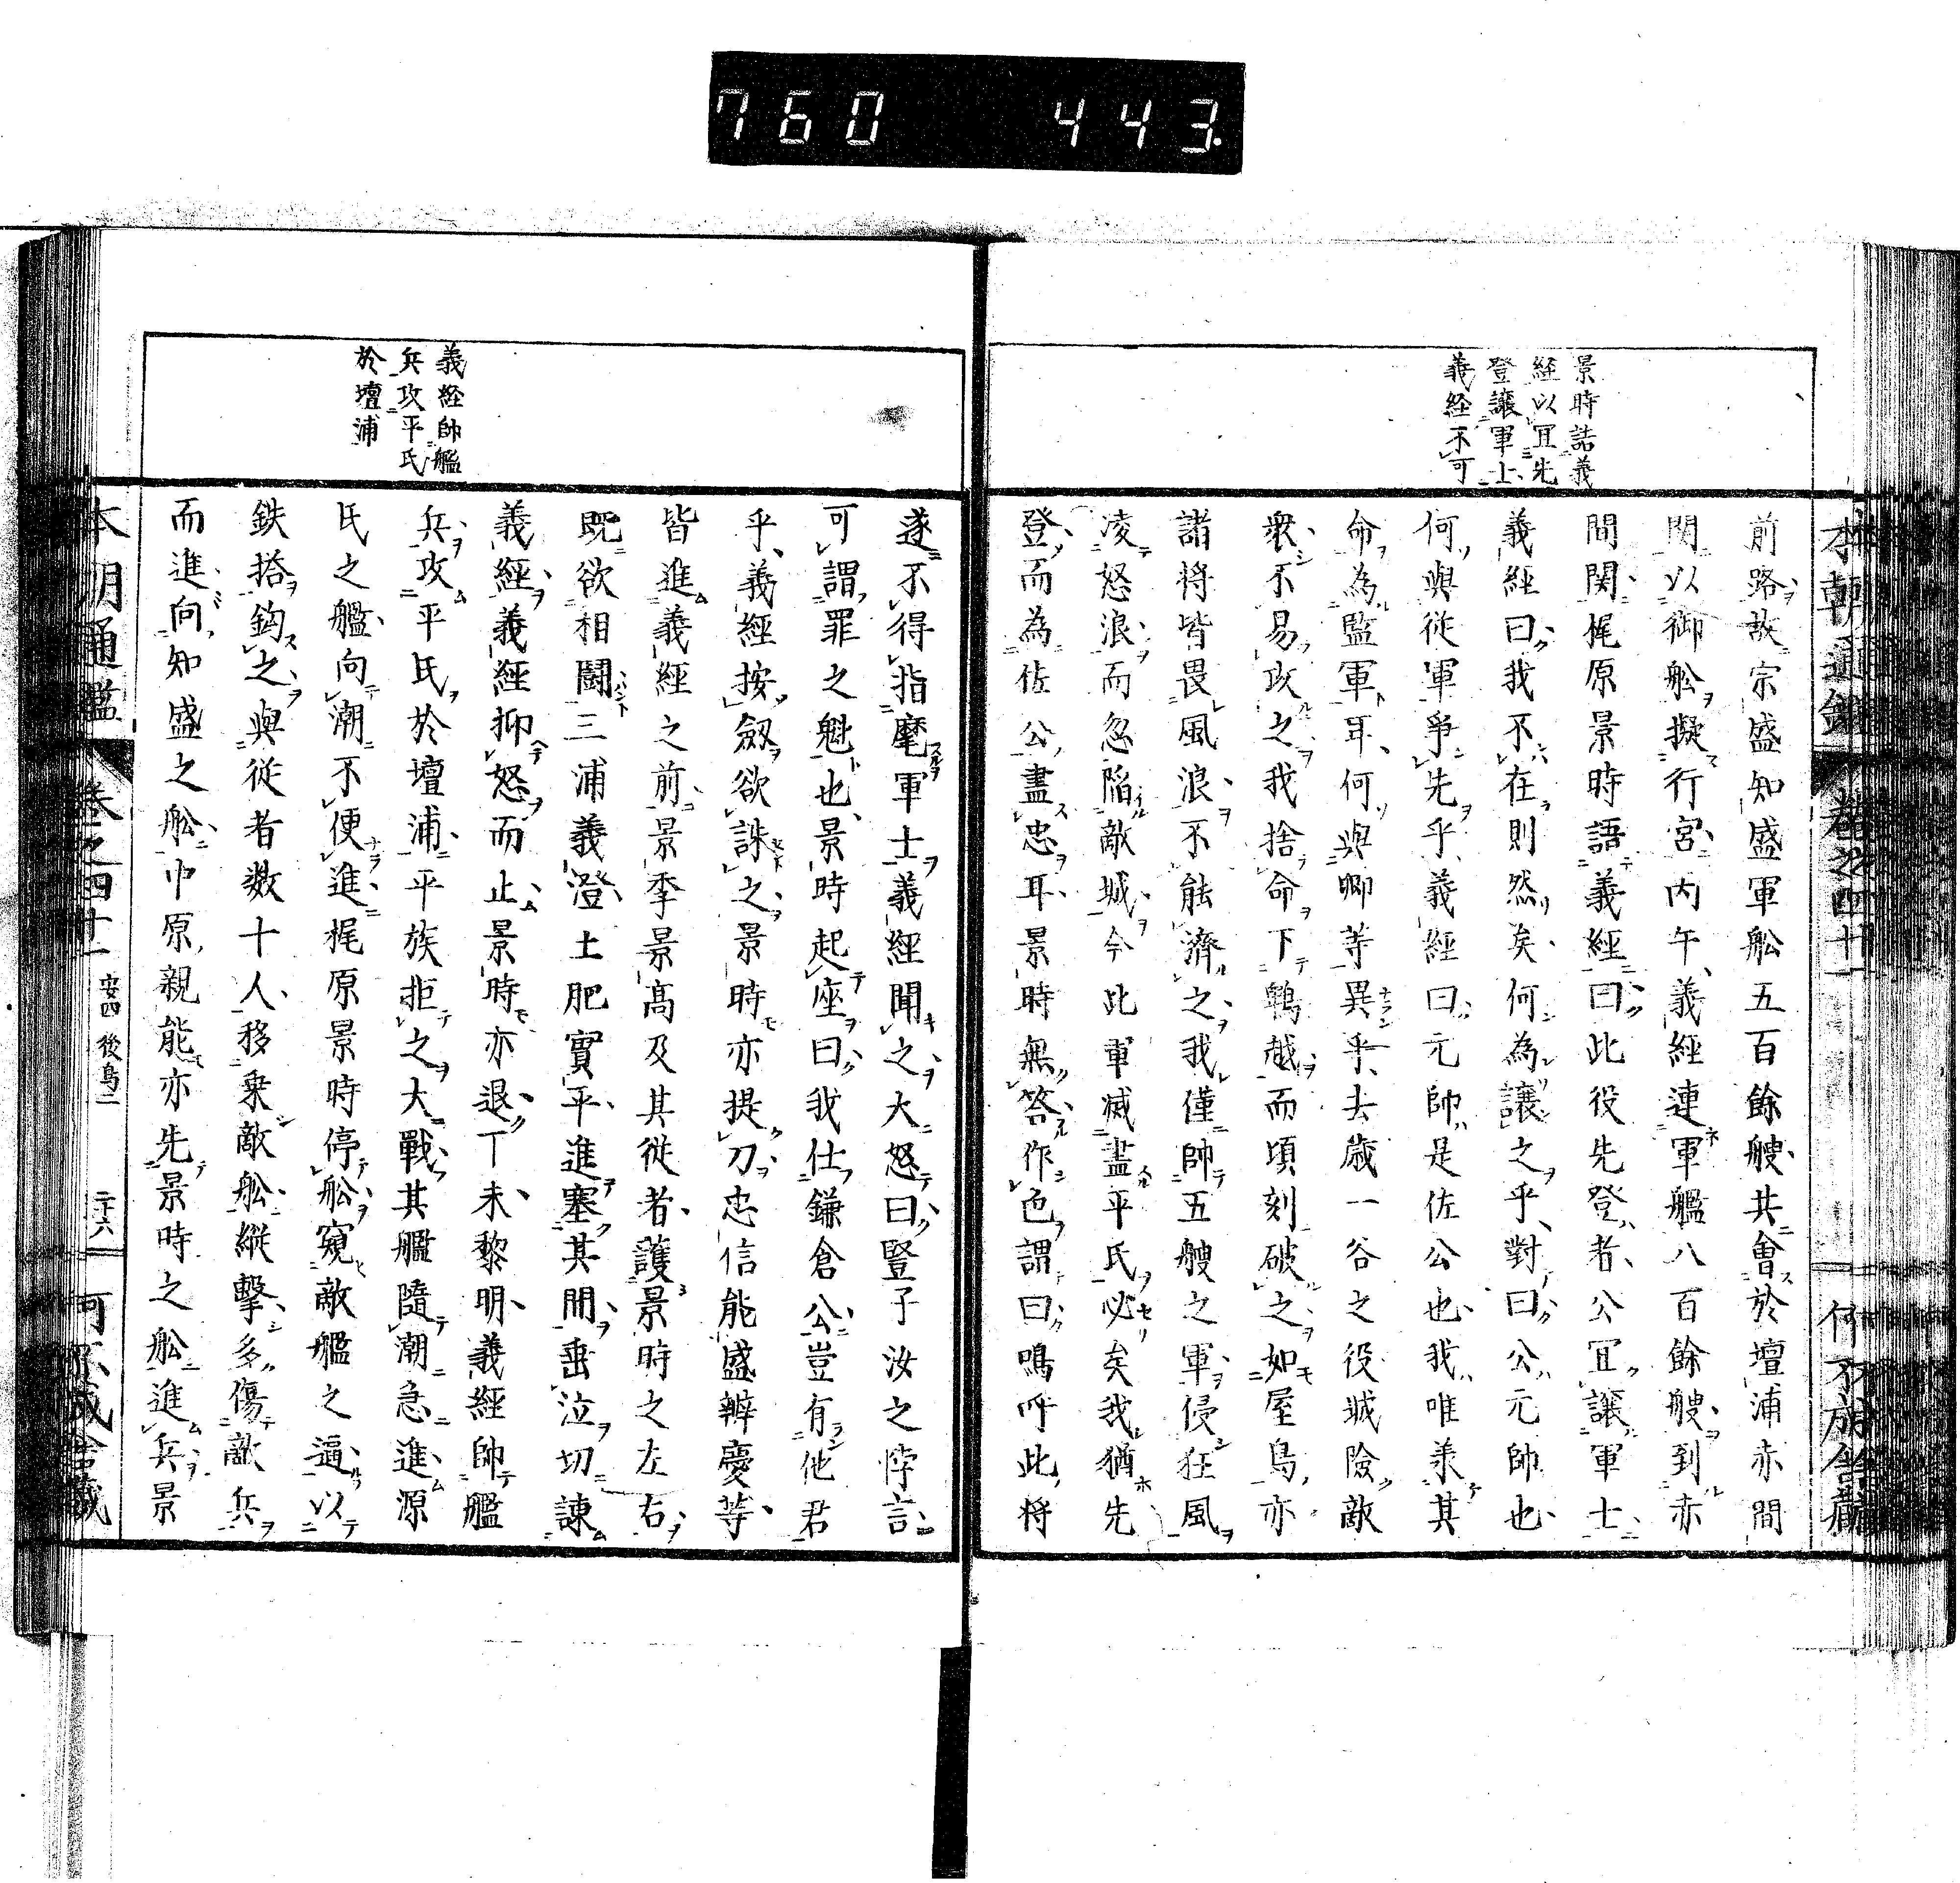 760 443
景時詰義
経以冝先
登讓軍士
義経不可
前路故宗盛知盛軍舩五百餘艘共會於壇浦赤間
関以御舩擬行宮丙午義經連軍艦八百餘艘到赤
間関梶原景時語義經曰此役先登者公冝讓軍士
義經曰我不在則然矣何為讓之乎對曰公元帥也
何與從軍爭先乎義經曰元帥是佐公也我唯羕其
命為監軍耳何與卿等異乎去歳一谷之役城險敵
衆不易攻之我捨命下鵯越而頃刻破之如屋島亦
諸将皆畏風浪不能濟之我僅帥五艘之軍侵狂風
凌怒浪而忽陥敵城今此軍滅盡平氏必矣我猶先
登而為佐公盡忠耳景時無答作色謂曰嗚呼此将
義経帥艦
兵攻平氏
於壇浦
遂不得指麾軍士義經聞之大怒曰豎子汝之悖言
可謂罪之魁也景時起座曰我仕鎌倉公豈有他君
乎義經按劔欲誅之景時亦提刀忠信能盛辨慶等
皆進義經之前景季景髙及其從者護景時之左右
既欲相鬪三浦義澄土肥實平進塞其間垂泣切諌
義經義經抑怒而止景時亦退丁未黎明義經帥艦
兵攻平氏於壇浦平族拒之大戰其艦隨潮急進源
氏之艦向潮不便進梶原景時停舩窺敵艦之逼以
鉄搭鈎之與從者数十人移乗敵舩縱擊多傷敵兵
而進向知盛之舩中原親能亦先景時之舩進兵景
本朝通鑑 卷之四十一 安四 後鳥二 二十六